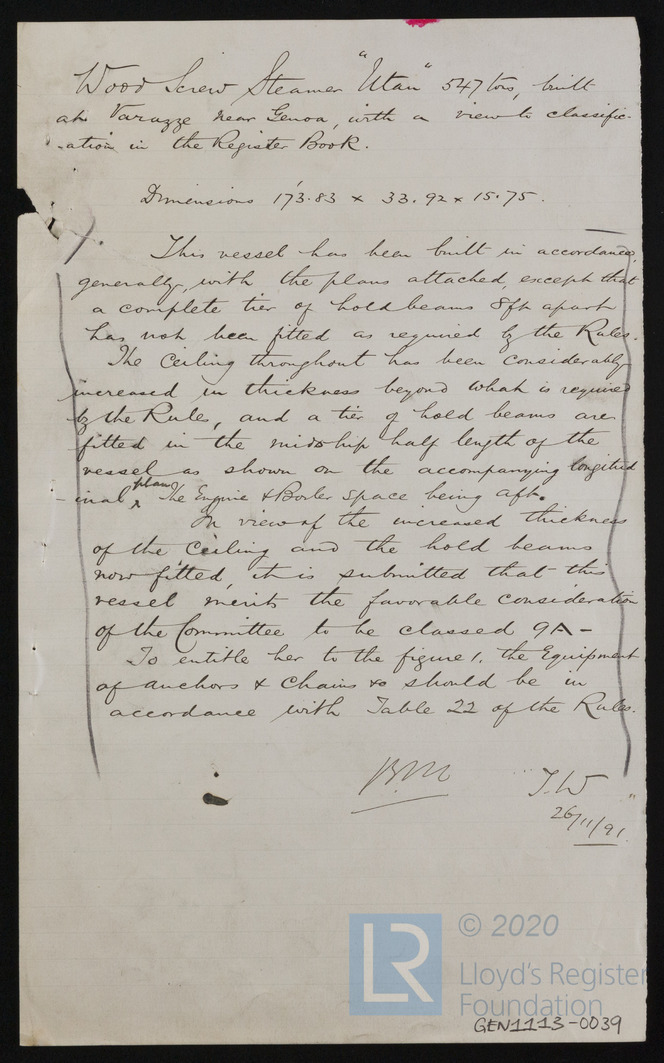 Wood Screw Steamer "Utan" 547 tons, built
at Varazze near Genoa, with a view to classific-
-ation in the Register Book.
Dimensions 173.83 x 33.92 x 15.75.
This vessel has been built in accordance,
generally, with the plans attached, except that
a complete tier of hold beams 8ft apart
has not been fitted as required by the Rules.
The Ceiling throughout has been considerably
increased in thickness beyond what is required
by the Rules, and a tier of hold beams are
fitted in the midship half length of the
vessel as shown on the accompanying longitud
-inal plan The Engine & Boiler space being aft.
In view of the increased thickness
of the Ceiling and the hold beams
now fitted, it is submitted that this
vessel merits the favorable consideration
of the Committee to be classed 9A -
To entitle her to the figure 1. the Equipment
of anchors & Chains &c should be in
accordance with Table 22 of the Rules.
J.W
26/11/91.
LR
© 2020
Lloyd's Register
Foundation
GEN1113-0039